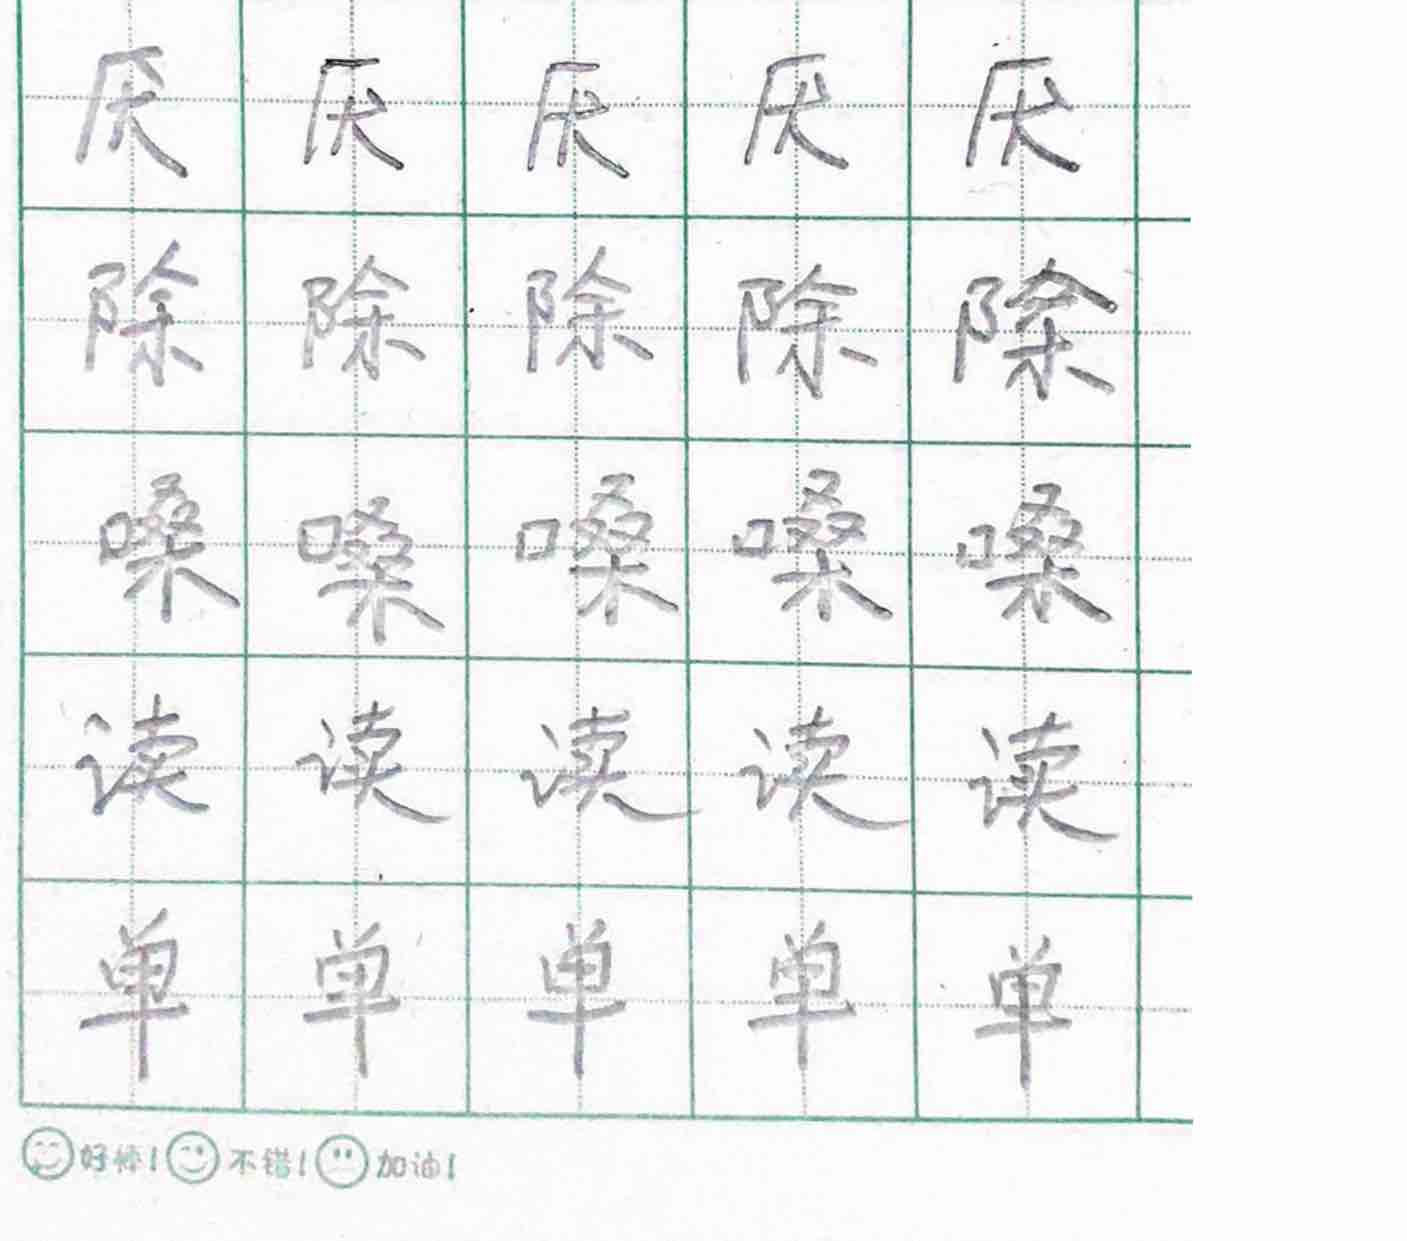 厌 厌 厌 厌 厌
除 除 除 除 除
嗓 嗓 嗓 嗓 嗓
读 读 读 读 读
单 单 单 单 单
好棒! 不错! 加油!